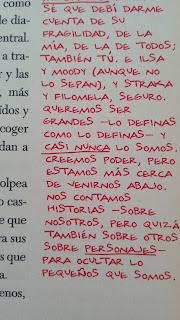 como
de dia-
entral.
a tra-
r y las
, más
ídos y
coger
dan a
olpea
o cas-
e que
ra sus
as in-
a.
enos,
SÉ QUE DEBÍ DARME
CUENTA DE SU
FRAGILIDAD, DE LA
MÍA, DE LA DE TODOS;
TAMBIÉN TÚ. E ILSA
Y MOODY (AUNQUE NO
LO SEPAN), Y STRAKA
Y FILOMELA, SEGURO.
QUEREMOS SER
GRANDES —LO DEFINAS
COMO LO DEFINAS— Y
CASI NUNCA LO SOMOS.
CREEMOS PODER, PERO
ESTAMOS MÁS CERCA
DE VENIRNOS ABAJO.
NOS CONTAMOS
HISTORIAS —SOBRE
NOSOTROS, PERO QUIZÁ
TAMBIÉN SOBRE OTROS
SOBRE PERSONAJES—
PARA OCULTAR LO
PEQUEÑOS QUE SOMOS.